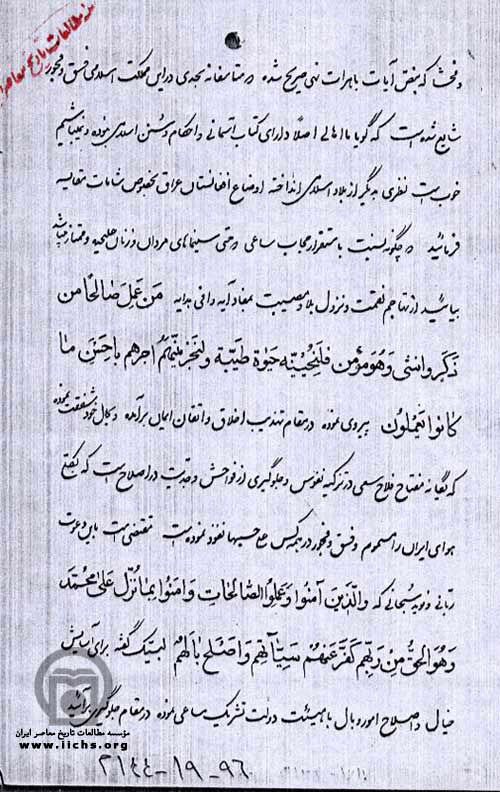 مطالعات تاریخ معاصر
و فحشا که بنص آیات باهرات نهی صریح شده و متأسفانه بحدی در این مملکت اسلامی فسق و فجور
شایع شده است که گویا ما اهالی اصلاً دارای کتاب آسمانی و احکام و سنن اسلامی نبوده و نمیباشیم
خوب است نظری بدیگر از بلاد اسلامی انداخته اوضاع افغانستان عراق بخصوص شامات مقایسه
فرمائید و چگونه نسبت باستقرار حجاب ساعی و حتی سینماهای مردان و زنان علیحده و ممتاز میباشد
بیائید از تهاجم نقمت و نزول بلا و مصیبت بمفاد آیه وافی هدایه مَن عَمِلَ صَالِحًا من
ذَکَرٍ وَ انثی وَ هُوَ مؤمن فلنُحیینّه حَیوة طَیّبة و لنجزینّهم اجرهم باحسَنِ ما
کانوا یَعمَلُون پیروی نموده در مقام تهذیب اخلاق و اتقان ایمان برآمده و بحال خود شفقت نموده
که یگانه مفتاح فلاح سعی در تزکیه نفوس و جلوگیری از فواحش و جدیت در اصلاح است که
هوای ایران را مسموم و فسق و فجور در همه کس علی حسبها نفوذ نموده است مقتضی است باین دعوت
ربانی و نوید سبحانی که والّذینَ آمنُوا وَعَمِلُوا الصّالحَاتِ وَ امَنُوا بِمَا نُزِّلَ عَلی مُحَمَّد
وَ هُوَ الحَقُّ مِن رَبِّهِم کَفَّرَ عَنهُم سَیِّئاتِهِم وَ اَصلَحَ بالَهُم لبیک گفته برای آسایش
خیال و اصلاح امور و بال با هیئت دولت تشریک مساعی نموده در مقام جلوگیری برآئید
مؤسسه مطالعات تاریخ معاصر ایران
www.iichs.org
۲۱۴۴-۱۹-۹۶